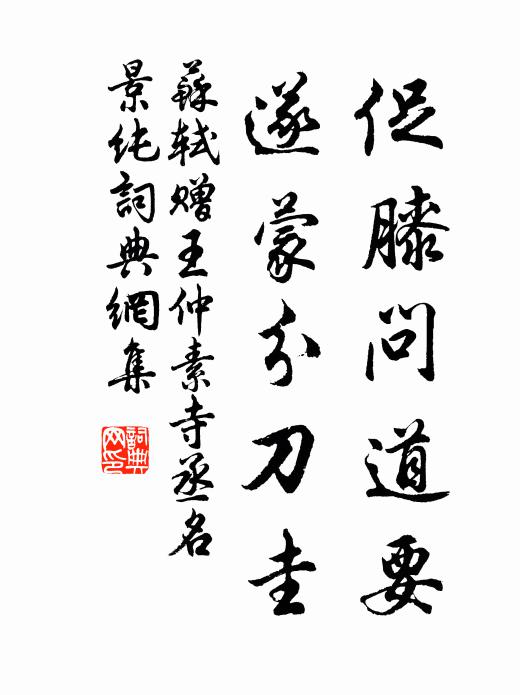 促膝問道要
遂蒙分刀圭
蘇軾贈王仲素寺丞名
景純詞典網集
詞典
网印